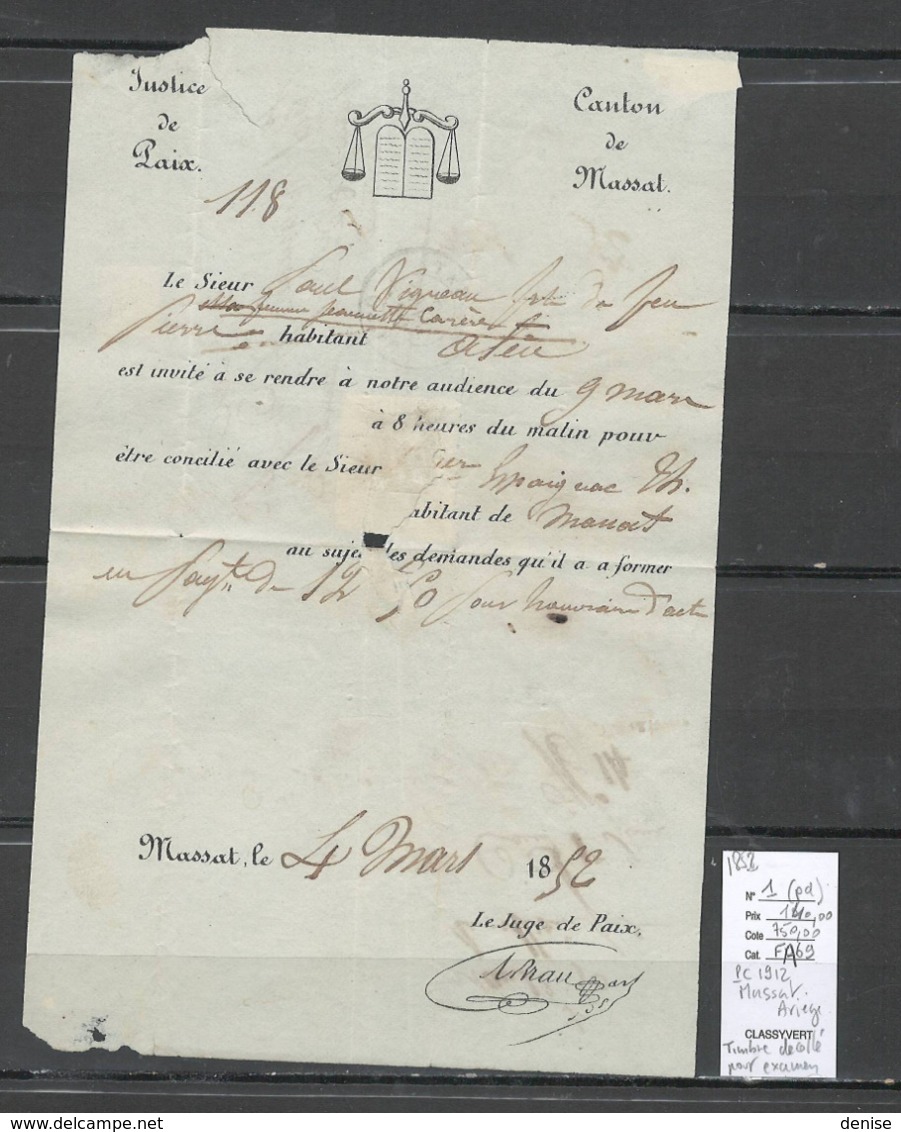 Justice
de
Paix.
Canton
de
Massat.
118
Le Sieur Paul Vigneau fils de feu
femme Jeannette Carrère
Pierre habitant
est invité à se rendre à notre audience du 9 mars
à 8 heures du matin pour
être concilié avec le Sieur
abitant de Massat
au suje des demandes qu'il a a former
en 12 50 pour d'acte
Massat, le 4 Mars 1852
Le Juge de Paix,
1852
N° 1 (pd)
Prix 120,00
Cote 750,00
Cat. FA69
PC 1912
Massat.
Ariege
CLASSYVERT
Timbre decollé
pour examen
denise